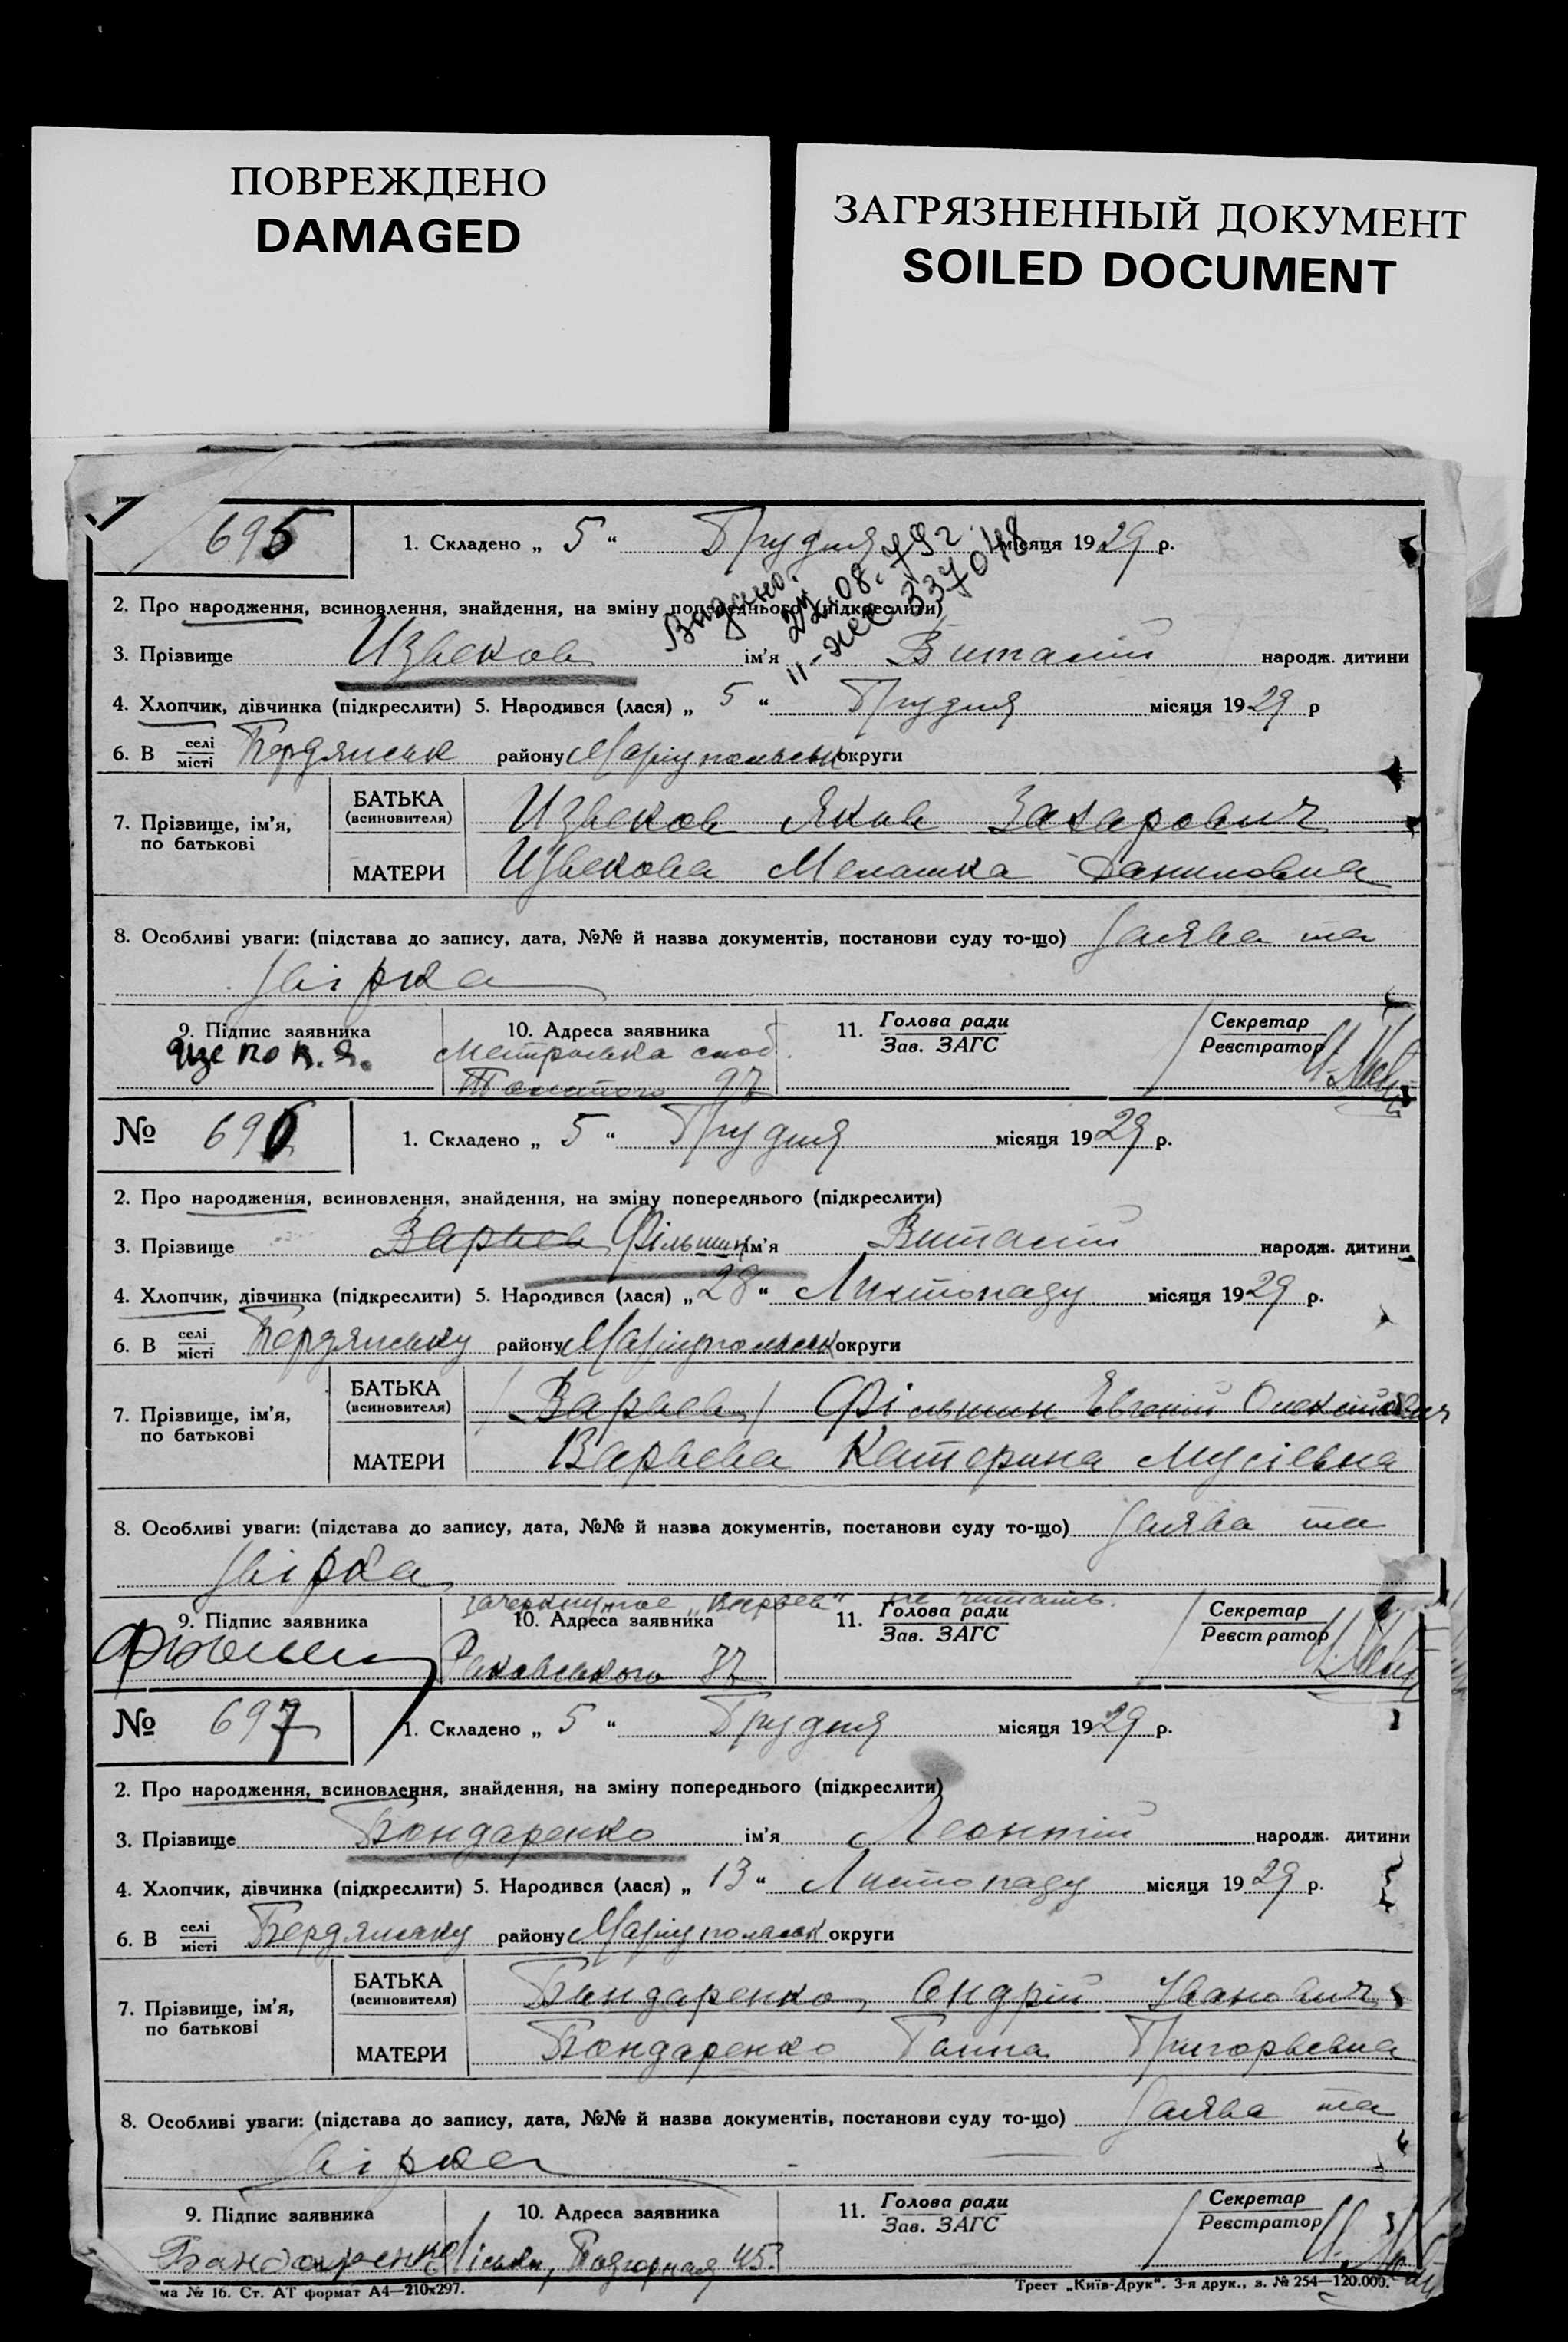 ПОВРЕЖДЕНО
DAMAGED
ЗАГРЯЗНЕННЫЙ ДОКУМЕНТ
SOILED DOCUMENT
695
1. Складено „ 5 “ Грудня місяця 1929 р.
Видано.
22.08.79г
II-ЖС 337048
2. Про народження, всиновлення, знайдення, на зміну попереднього (підкреслити)
3. Прізвище Извеков ім'я Виталій народж. дитини
4. Хлопчик, дівчинка (підкреслити) 5. Народився (лася) „ 5 “ Грудня місяця 1929 р
6. В селі місті Бердянськ району Маріупольськ округи
7. Прізвище, ім'я, по батькові
БАТЬКА (всиновителя) Извеков Яков Захарович
МАТЕРИ Извекова Мелашка Даниловна
8. Особливі уваги: (підстава до запису, дата, №№ й назва документів, постанови суду то-що) Заява та
звірка
9. Підпис заявника 10. Адреса заявника 11. Голова ради Зав. ЗАГС Секретар Реєстратор
Толстого 97
№ 696 1. Складено „ 5 “ Грудня місяця 1929 р.
2. Про народження, всиновлення, знайдення, на зміну попереднього (підкреслити)
3. Прізвище Варьев Фільшин ім'я Виталій народж. дитини
4. Хлопчик, дівчинка (підкреслити) 5. Народився (лася) „ 28 “ Листопаду місяця 1929 р.
6. В селі місті Бердянську району Маріупольськ округи
7. Прізвище, ім'я, по батькові
БАТЬКА (всиновителя) / Варьев / Фільшин Евгеній Олексійович
МАТЕРИ Варьева Катерина Мусіевна
8. Особливі уваги: (підстава до запису, дата, №№ й назва документів, постанови суду то-що) Заява та
звірка
зачеркнутое „Варьев" не читать.
9. Підпис заявника 10. Адреса заявника 11. Голова ради Зав. ЗАГС Секретар Реєстратор
Раковського 37
№ 697 1. Складено „ 5 “ Грудня місяця 1929 р.
2. Про народження, всиновлення, знайдення, на зміну попереднього (підкреслити)
3. Прізвище Бондаренко ім'я Леонтій народж. дитини
4. Хлопчик, дівчинка (підкреслити) 5. Народився (лася) „ 13 “ Листопаду місяця 1929 р.
6. В селі місті Бердянську району Маріупольськ округи
7. Прізвище, ім'я, по батькові
БАТЬКА (всиновителя) Бондаренко Андрій Іванович
МАТЕРИ Бондаренко Ганна Григорьевна
8. Особливі уваги: (підстава до запису, дата, №№ й назва документів, постанови суду то-що) Заява та
звірка
9. Підпис заявника 10. Адреса заявника 11. Голова ради Зав. ЗАГС Секретар Реєстратор
Бандаренко Ліски, Подгорная 45
ма № 16. Ст. АТ формат А4—210х297.
Трест „Київ-Друк“. 3-я друк., з. № 254—120.000.